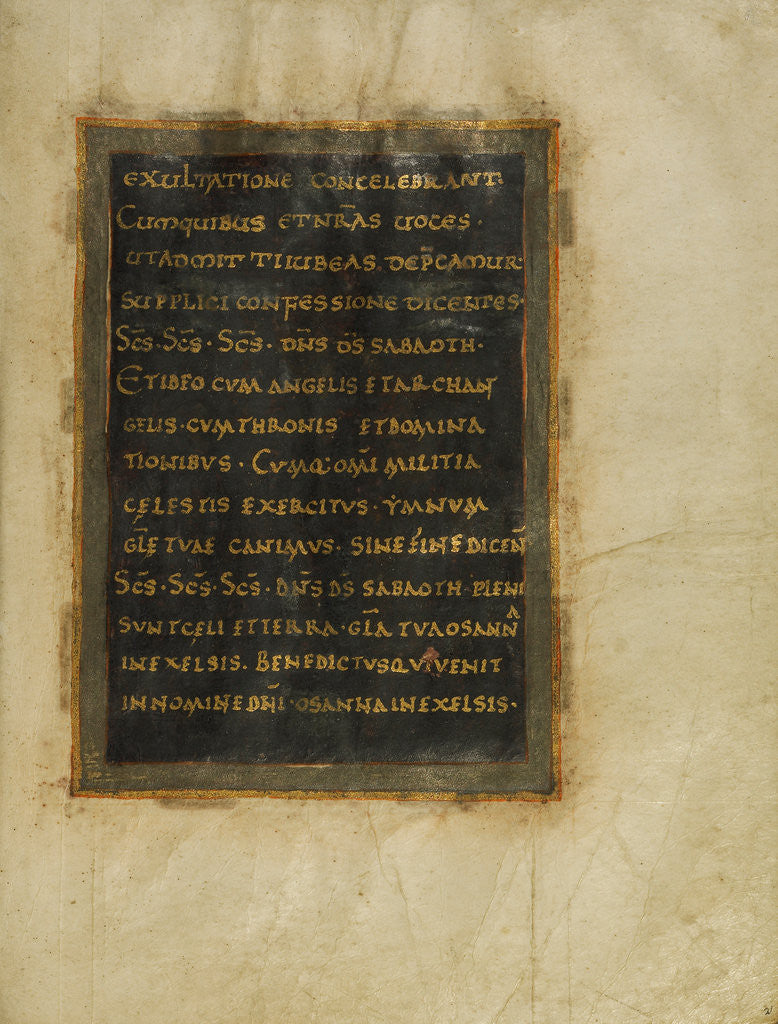 EXULTATIONE CONCELEBRANT.
CUMQUIBUS ETNR̄AS UOCES·
UTADMITTIIUBEAS. DEP̄CAMUR·
SUPPLICI CONFESSIONE DICENTES·
SC̄S·SC̄S·SC̄S· DN̄S DS̄ SABAOTH·
ETIDEO CVM ANGELIS ETARCHAN
GELIS·CVMTHRONIS ETDOMINA
TIONIBVS· CVMQ: OM̄I MILITIA
CELESTIS EXERCITVS· YMNUM
GL̄E TVAE CANIMVS· SINEFINEDICEN̄
SC̄S·SC̄S·SC̄S· DN̄S DS̄ SABAOTH· PLENI
SVNTCELI ETTERRA·GL̄A TVAOSANNA
INEXELSIS. BENEDICTVSQVIVENIT
INNOMINE DN̄I·OSANNAINEXELSIS·